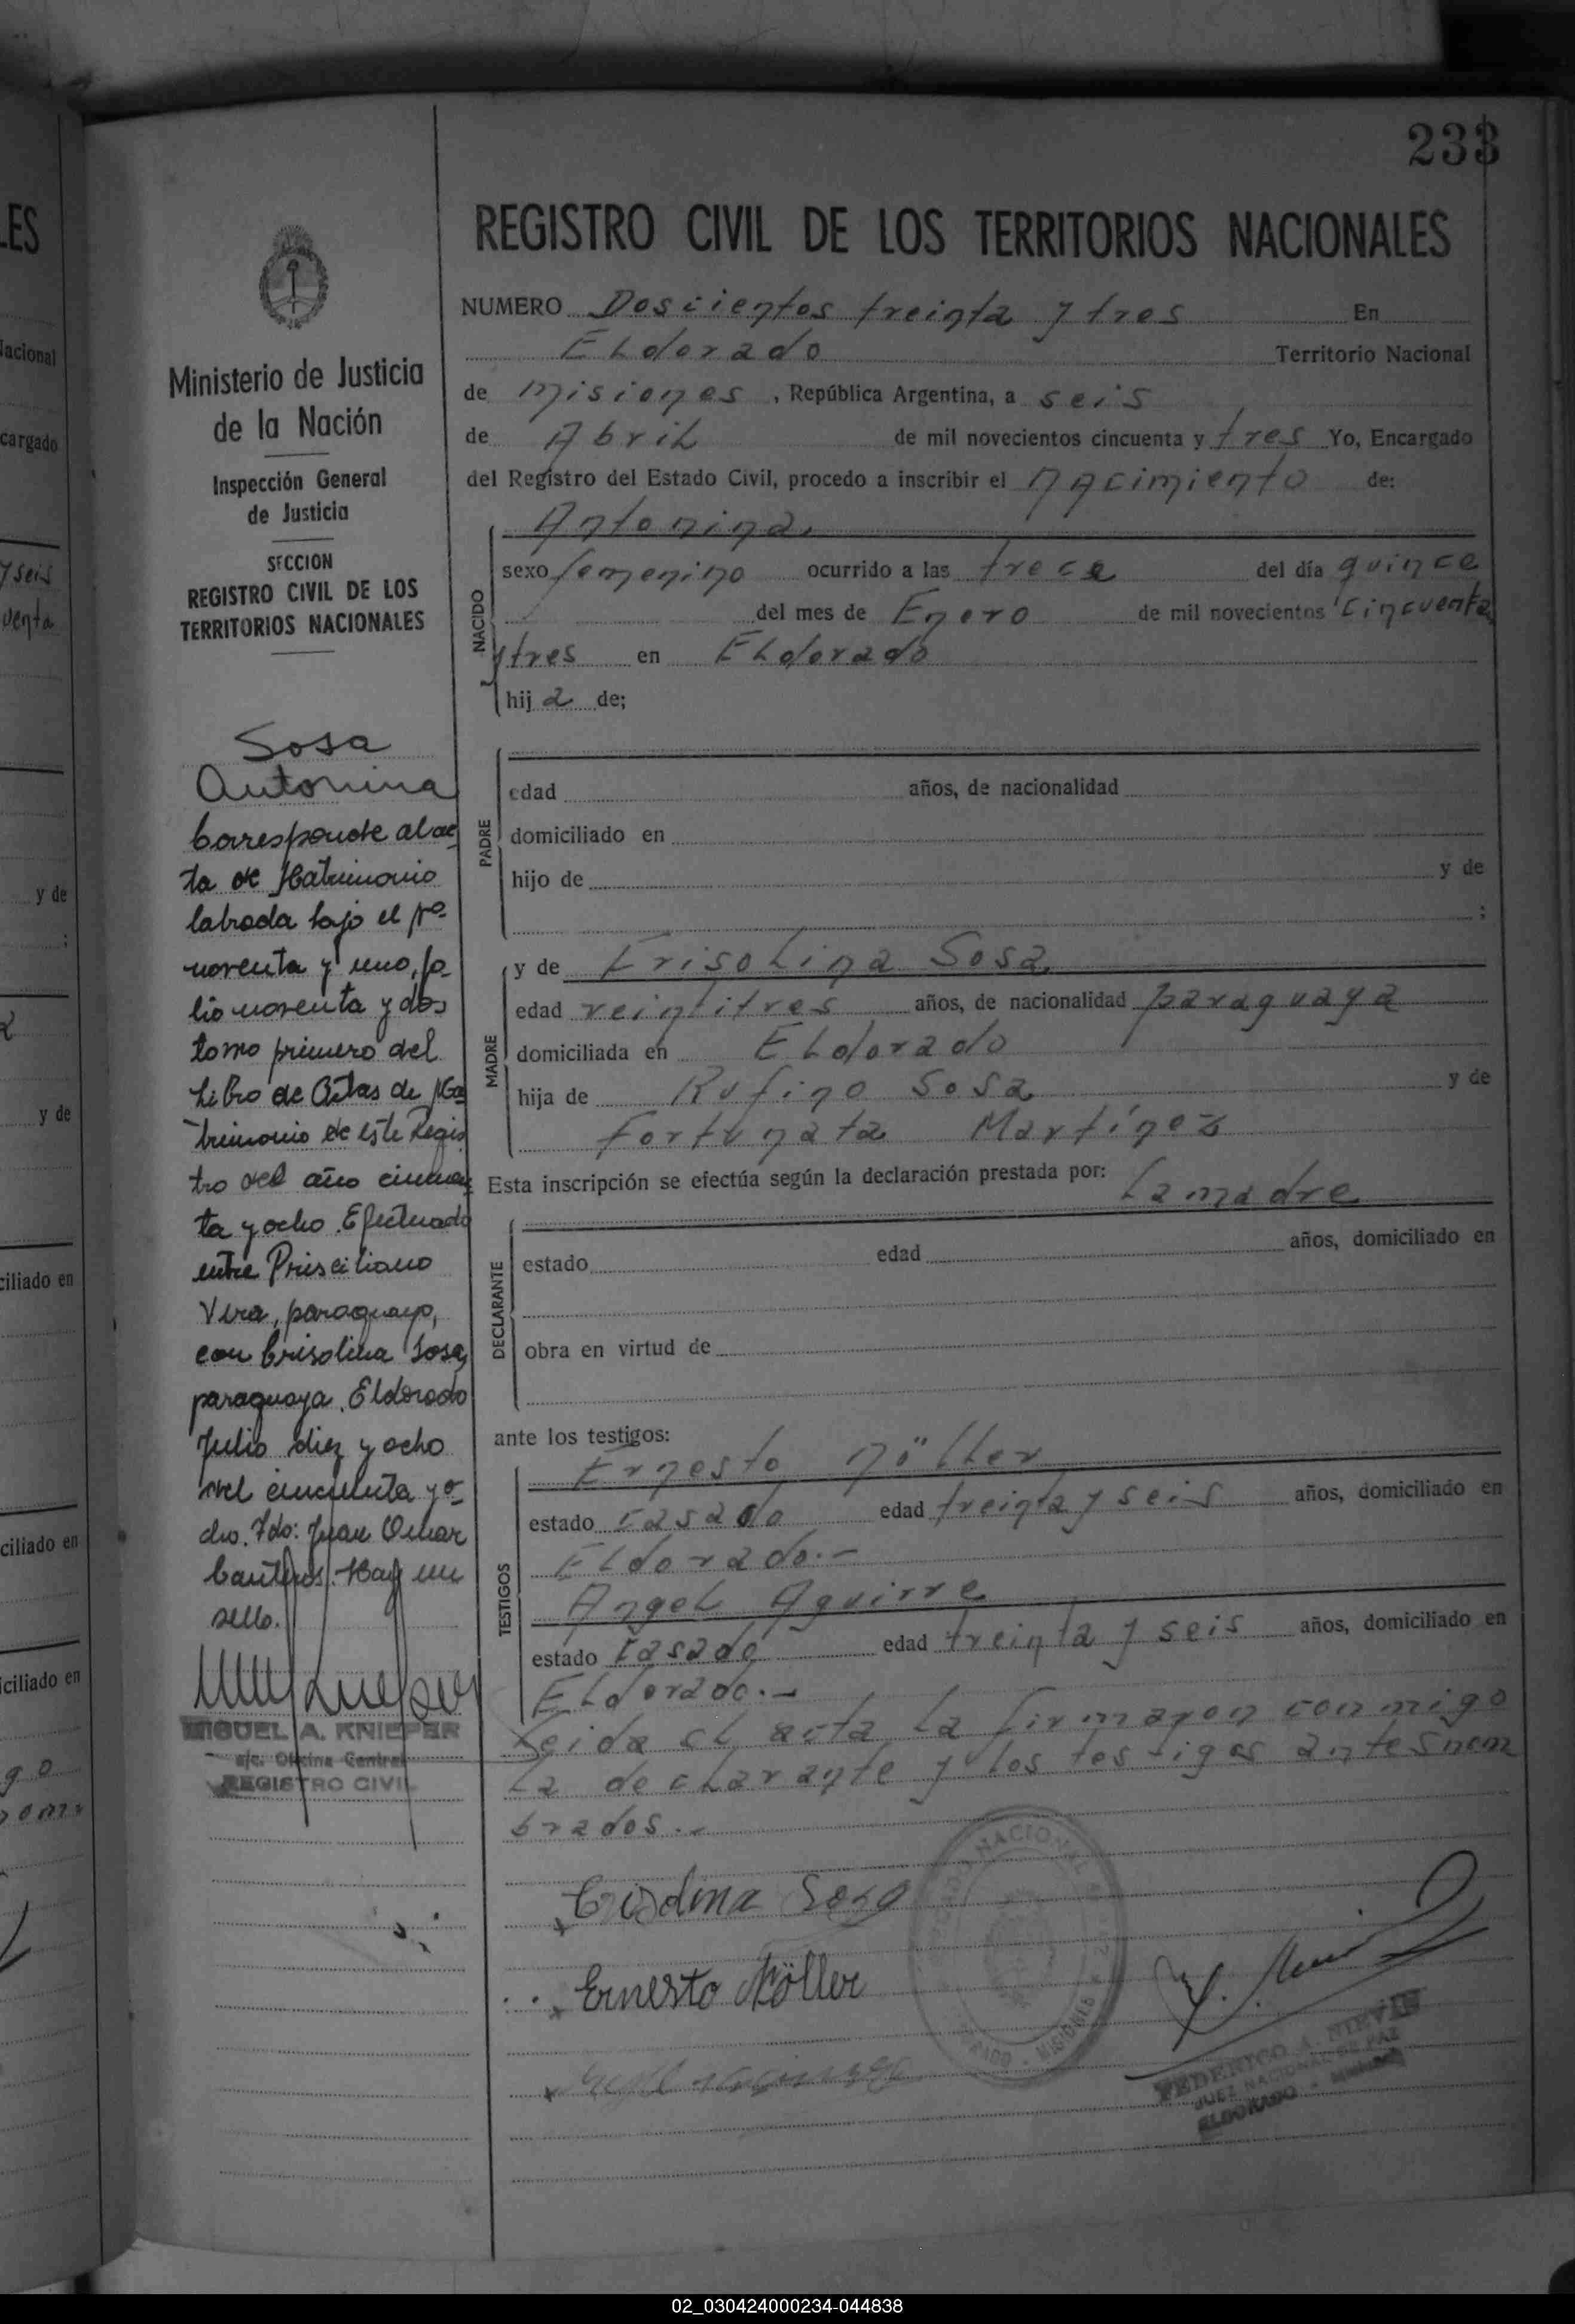 233
REGISTRO CIVIL DE LOS TERRITORIOS NACIONALES
Ministerio de Justicia
de la Nación
Inspección General
de Justicia
SECCION
REGISTRO CIVIL DE LOS
TERRITORIOS NACIONALES
Sosa
Antonina
Corresponde al ac
ta de Matrimonio
labrada bajo el Nº
noventa y uno, fo
lio noventa y dos
tomo primero del
Libro de Actas de Ma
trimonio de este Regis
tro del año cincuen
ta y ocho. Efectuado
entre Prisciliano
Vera, paraguayo,
con Crisolina Sosa,
paraguaya. Eldorado
Julio diez y ocho
del cincuenta y o
cho. Fdo: Juan Omar
Canteros. Hay un
sello.
MIGUEL A. KNIEPER
a/c. Oficina Central
REGISTRO CIVIL
NUMERO Doscientos treinta y tres En
ELdorado Territorio Nacional
de misiones , República Argentina, a seis
de AbriL de mil novecientos cincuenta y tres Yo, Encargado
del Registro del Estado Civil, procedo a inscribir el nacimiento de:
Antonina.
NACIDO
sexo femenino ocurrido a las trece del día quince
del mes de Enero de mil novecientos cincuenta
y tres en ELdorado
hij a de;
PADRE
edad años, de nacionalidad
domiciliado en
hijo de y de
;
MADRE
y de CrisoLina Sosa.
edad veintitres años, de nacionalidad paraguaya
domiciliada en ELdorado
hija de Rufino Sosa y de
Fortunata Martínez
Esta inscripción se efectúa según la declaración prestada por: La madre
DECLARANTE
estado edad años, domiciliado en
obra en virtud de
ante los testigos:
TESTIGOS
Ernesto Möller
estado casado edad treinta y seis años, domiciliado en
ELdorado.-
AngeL Aguirre
estado casado edad treinta y seis años, domiciliado en
ELdorado.-
Leida eL acta La firmaron conmigo
La decLarante y Los testigos antes nom
brados.-
Crisolina Sosa
Ernesto Möller
NACIONAL
MISIONES
FEDERICO A.
JUEZ NACIONAL DE PAZ
ELDORADO - Misiones
LES
Nacional
cargado
y seis
venta
y de
;
a
y de
ciliado en
ciliado en
iciliado en
go
nom
02_030424000234-044838